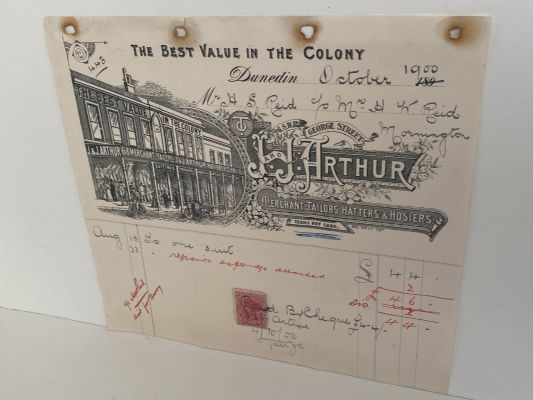 445
THE BEST VALUE IN THE COLONY
Dunedin October 1900
189
Mr H. S. Reid c/o Mr H. W. Reid
Mornington
THE BEST VALUE IN THE COLONY
GEORGE STREET
J. J. ARTHUR
MERCHANT TAILORS HATTERS & HOSIERS
TERMS NET CASH
Aug 18 To one suit £ 4 4 -
23 " repairs 2
£ 4 6 -
Dis 2
4 4 -
By Cheque £4-4/-
Arthur
4/10/00